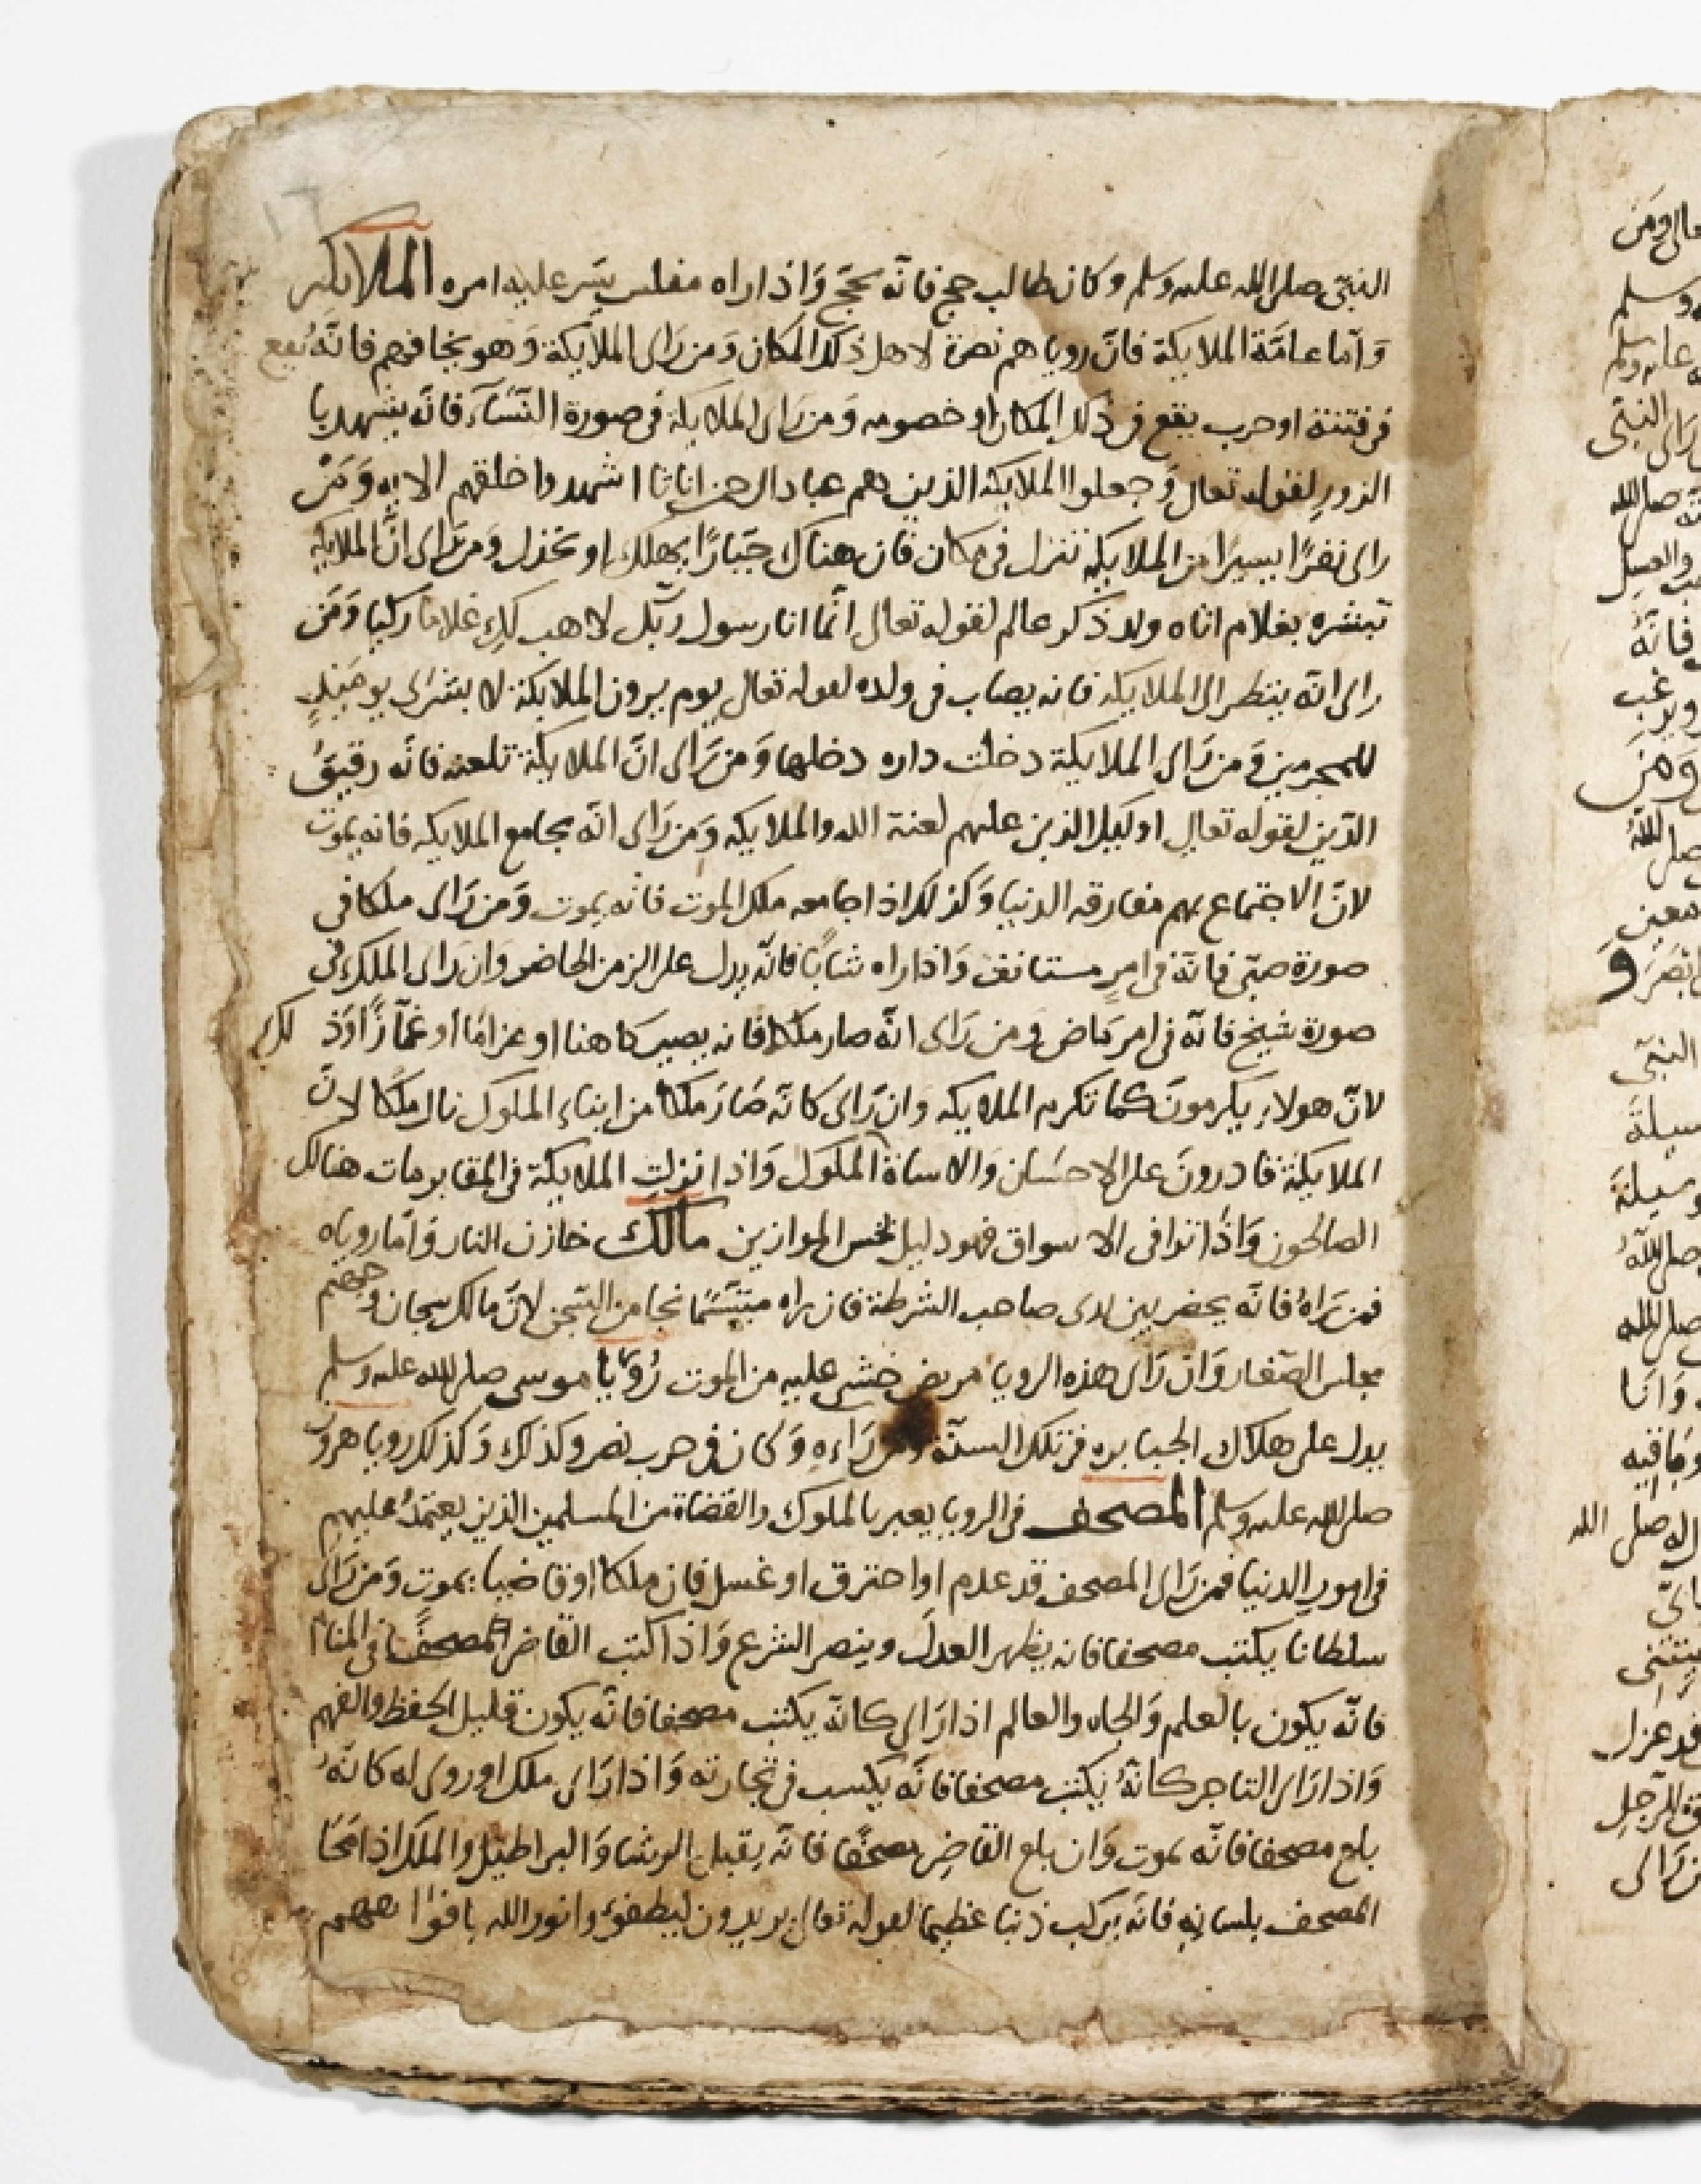 النبيّ صلى الله عليه وسلم وكان طالب حج فانّه يحجّ وَاذا راه مفلس يسّر عليه امره الملايكة
وَامّا عامّة الملايكة فانّ روياهم نصرة لاهل ذلك المكان وَمن رَاى الملايكة وَهو يخافهم فانّه يقع
فى فتنة او حرب يقع فى ذلك المكان او خصومه وَمن رَاى الملايكة فى صورة النّسَآء فانّه يشهد با
الزور لقوله تعالى وَجعلوا الملايكه الذين هم عباد الرحمن اناثا اشهدوا خلقهم الايه وَمَنْ
راى نفرًا يسيرًا من الملايكه تنزل فى مكان فان هناك جبّارًا يهلك او يخذل وَمن رَاى انّ الملايكه
تبشره بغلام اتاه ولد ذكر عالم لقوله تعالى انّما انا رسول ربّك لاهب لكِ غلاما زكيا وَمَن
راى انّه ينظر الى الملايكه فانه يصاب فى ولده لقوله تعالى يوم يرون الملايكة لا بشرى يوميذٍ
للمجرمين وَمن رَاى الملايكة دخلت داره دخلها وَمن رَاى انّ الملايكة تلعنه فانّه رقيقُ
الدّين لقوله تعالى اوليك الذين عليهم لعنة الله والملايكه وَمن رَاى انّه يجامع الملايكه فانه يموت
لانّ الاجتماع بهم مفارقه الدنيا وَكذلك اذا جامعه ملك الموت فانّه يموت وَمن رَاى ملكا فى
صورة صبّى فانّه فى امرٍ مستانف وَاذا راه شابًا فانّه يدل على الزمن الحاضر وَان رَاى الملك فى
صورة شيخ فانّه فى امر مَاض ومن رَاى انّه صار ملكا فانه يصير كاهنا او عزامًا او غمّازًا وَكذ لك
لانّ هولاء يكرمونَ كما تكرم الملايكه وان رَاى كانّه صَار مَلكًا من ابناء الملوك نال ملكًا لانّ
الملايكة قادرونَ على الاحسَان وَالاساة الملوك وَاذا نزلت الملايكة فى المقابر مات هنالك
الصالحون وَاذا نزلوا فى الاسواق فهو دليل بخس الموازين مالك خازن النار وَامّا روياه
فمن رَاهُ فانّه يحضر بين يدى صاحب الشرطة فان راه متبسّمًا نجا من السّجن لانّ مالك سجان وجهنم
مجلس الصّغار وَان رَاى هذه الرويا مريض خشى عليه من الموت رُوْيا موسى صلى الله عليه وسلم
يدل على هلاك الجبابره فى تلك السنة وَمن رَاءه وَكان فى حرب نصر وكذلك وَكذلك رويا هرون
صلى الله عليه وسلم المصحف فى الرويا يعبر بالملوك والقضاة من المسلمين الذين يعتمدُ عليهم
فى امور الدنيا فمن رَاى المصحف قد عدم او احترق او غسل فان ملكا او قاضيا يموت وَمن رَاى
سلطانا يكتب مصحفا فانه يظهر العدلَ وينصر الشرع وَاذا كتب القاضى المصحفَ فى المنام
فانّه يكون بالعلم وَالجاه والعالم اذا رَاى كانّه يكتب مصحفا فانّه يكون قليل الحفظ والفهم
وَاذا رَاى التاجر كانّهُ يكتب مصحفا فانّه يكسب فى تجارته وَاذا رَاى ملك او روى له كانّهُ
بلع مصحفا فانّه يموت وَان بلع القاضى مصحفًا فانّه يقبل الرشا وَالبراطيل والملك اذا محَا
المصحف بلسانه فانّه يركب ذنبا عظيما لقوله تعالى يريدون ليطفوء وا نور الله بافواههم